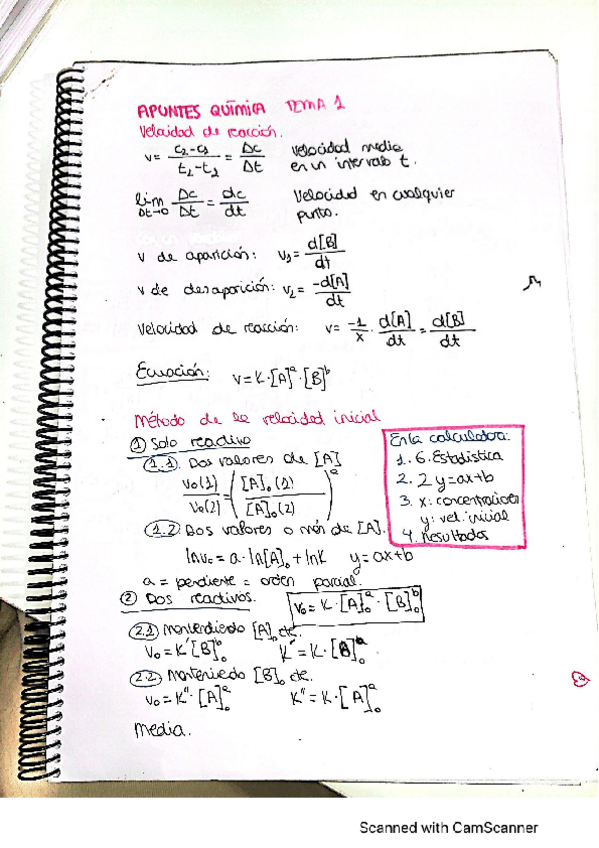 APUNTES QUÍMICA TEMA 1
Velocidad de reacción.
v = (c₂-c₁)/(t₂-t₁) = Δc/Δt Velocidad media
en un intervalo t.
lim Δt→0 Δc/Δt = dc/dt Velocidad en cualquier
punto.
v de aparición: v₁ = d[B]/dt
v de desaparición: v₂ = -d[A]/dt
Velocidad de reacción: v = -1/x · d[A]/dt = d[B]/dt
Ecuación: v = K·[A]ᵃ·[B]ᵇ
Método de la velocidad inicial
① Solo reactivo
1.1. Dos valores de [A]
v₀(1)/v₀(2) = ([A]₀(1)/[A]₀(2))ᵃ
1.2. Dos valores o más de [A].
lnv₀ = a·ln[A]₀ + lnK y = ax+b
a = pendiente = orden parcial.
En la calculadora:
1. 6. Estadística
2. 2 y=ax+b
3. x: concentración
y: vel. inicial
4. Resultados
② Dos reactivos. v₀ = K·[A]₀ᵃ·[B]₀ᵇ
2.1 Manteniendo [A]₀ cte.
v₀ = K'[B]₀ᵇ K' = K·[A]₀ᵃ.
2.2 Manteniedo [B]₀ cte.
v₀ = K''·[A]₀ᵃ K'' = K·[A]₀ᵃ
Media.
Scanned with CamScanner